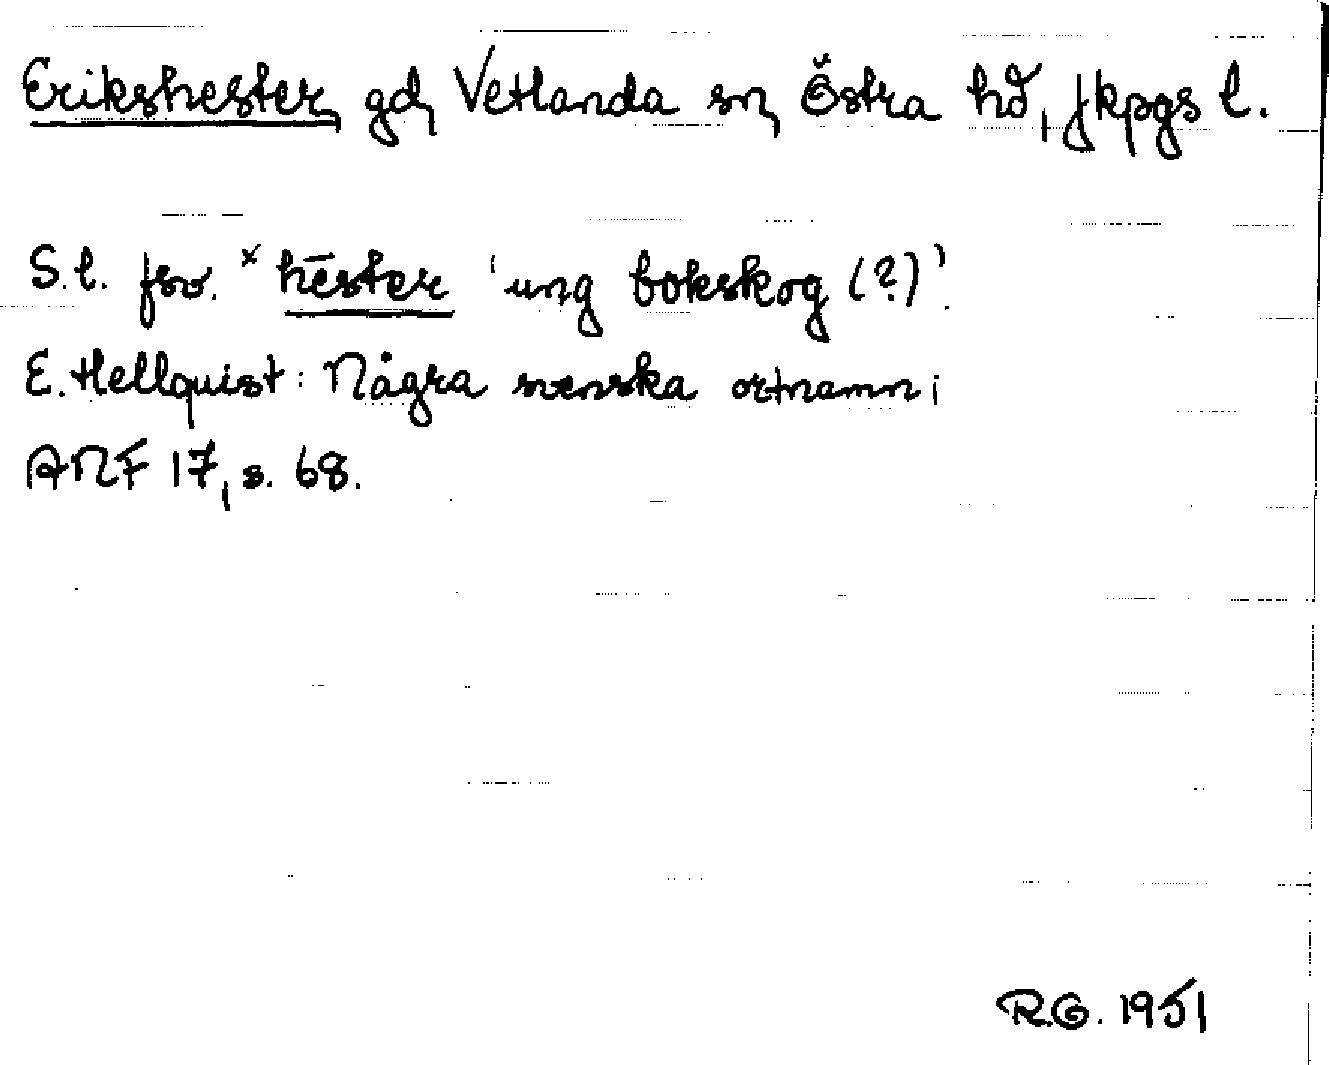 Erikshester, gd, Vetlanda sn, Östra hd, Jkpgs l.
S.l. fsv. ˣhēster 'ung bokskog (?)'.
E. Hellquist: Några svenska ortnamn i
ANF 17, s. 68.
R.G. 1951